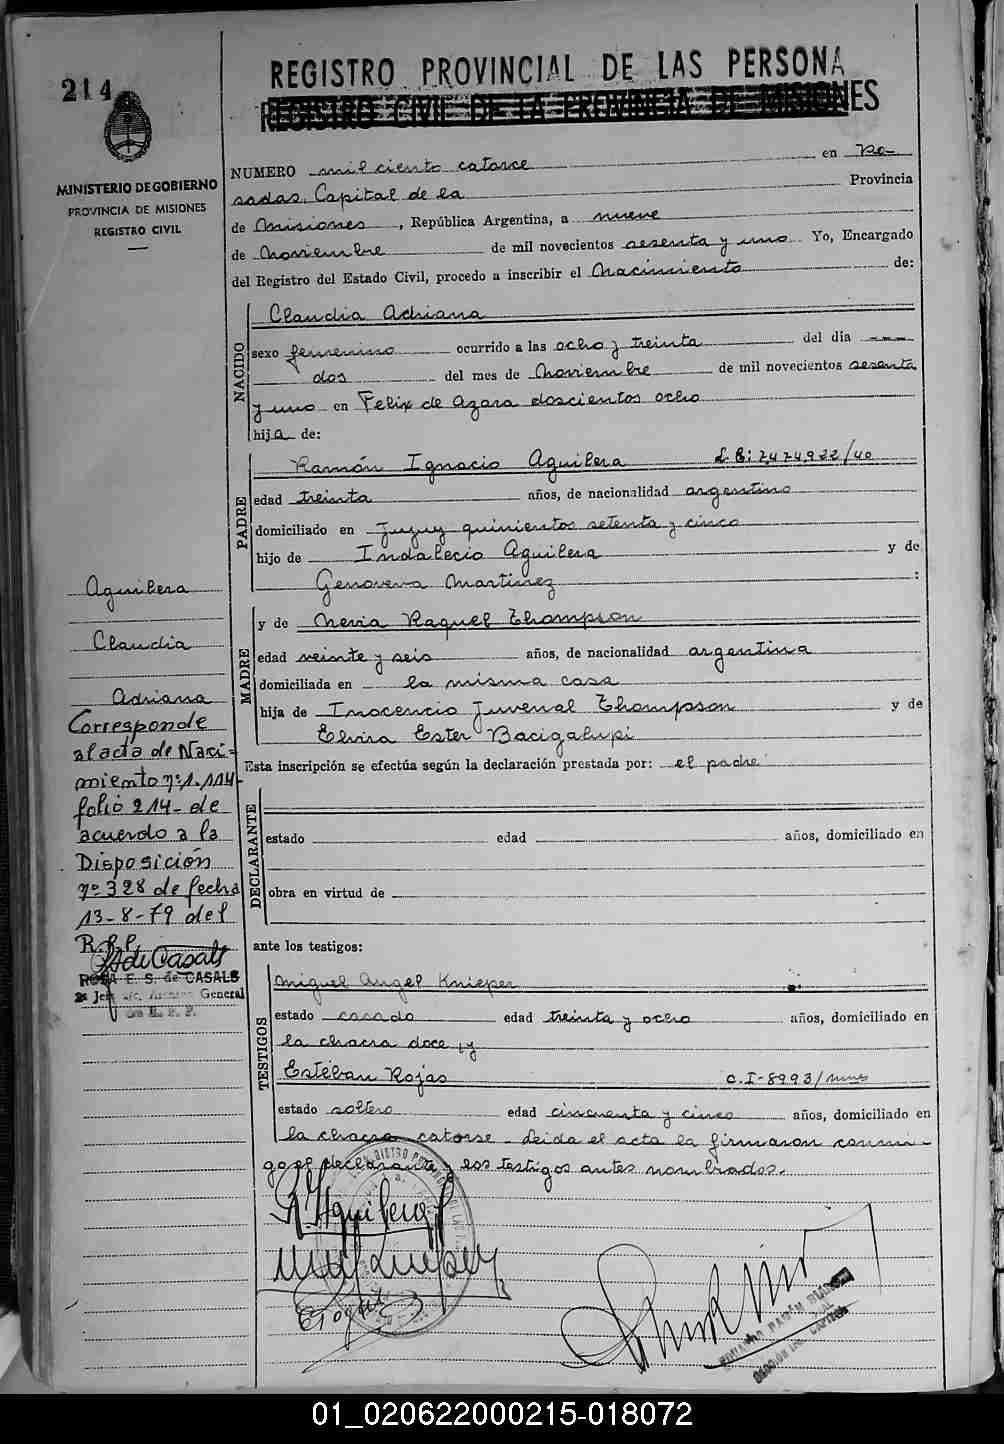 214
MINISTERIO DE GOBIERNO
PROVINCIA DE MISIONES
REGISTRO CIVIL
REGISTRO PROVINCIAL DE LAS PERSONA
REGISTRO CIVIL DE LA PROVINCIA DE MISIONES
NUMERO mil ciento catorce en Po-
sadas, Capital de la Provincia
de Misiones, República Argentina, a nueve
de Noviembre de mil novecientos sesenta y uno Yo, Encargado
del Registro del Estado Civil, procedo a inscribir el Nacimiento de:
NACIDO
Claudia Adriana
sexo femenino ocurrido a las ocho y treinta del día ---
dos del mes de Noviembre de mil novecientos sesenta
y uno en Felix de Azara doscientos ocho
hija de:
PADRE
Ramón Ignacio Aguilera L. E: 7.474.922/40
edad treinta años, de nacionalidad argentino
domiciliado en Jujuy quinientos setenta y cinco
hijo de Indalecio Aguilera y de
Genoveva Martinez :
MADRE
y de Nevia Raquel Thompson
edad veinte y seis años, de nacionalidad argentina
domiciliada en la misma casa
hija de Inocencio Juvenal Thompson y de
Elvira Ester Bacigalupi
Esta inscripción se efectúa según la declaración prestada por: el padre
DECLARANTE
estado edad años, domiciliado en
obra en virtud de
ante los testigos:
TESTIGOS
Miguel Angel Knieper
estado casado edad treinta y ocho años, domiciliado en
la chacra doce, y
Estéban Rojas C. I-8993/mnes
estado soltero edad cincuenta y cinco años, domiciliado en
la chacra catorse. Leida el acta la firmaron conmi-
go el declarante y los testigos antes nombrados.
R. I. Aguilera
Aguilera
Claudia
Adriana
Corresponde
al acta de Naci-
miento nº:1.114-
folio 214- de
acuerdo a la
Disposición
nº 328 de fecha
13-8-79 del
R.P.P.
de Casals
ROSA E. S. de CASALS
General
01_020622000215-018072